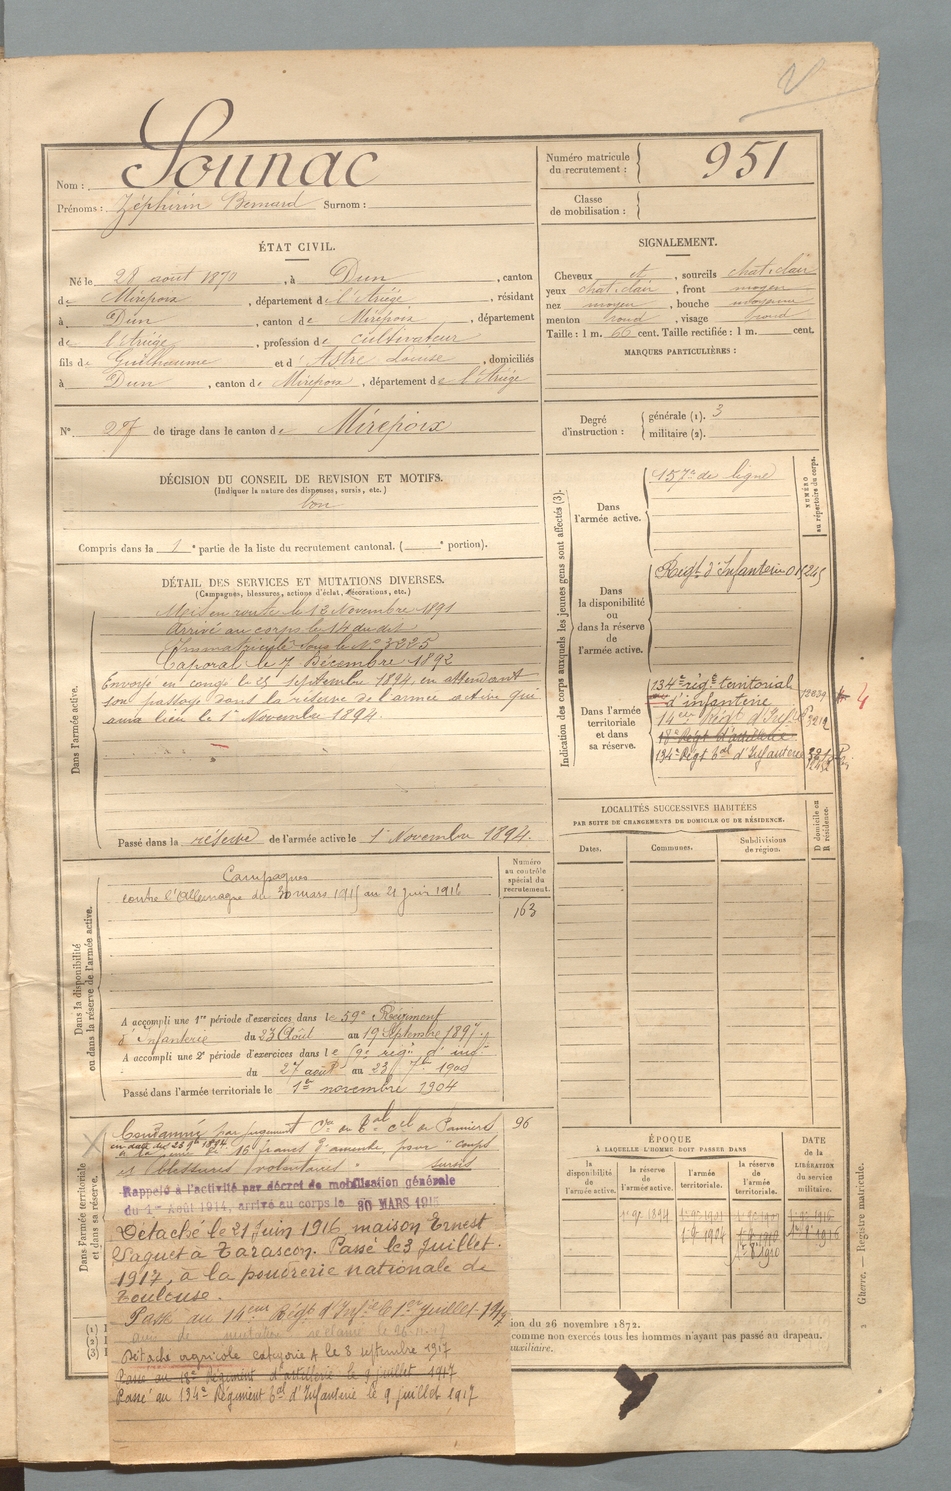 Nom : Sounac
Prénoms : Zéphirin Bernard Surnom :
Numéro matricule du recrutement : 951
Classe de mobilisation :
ÉTAT CIVIL.
Né le 28 août 1870, à Dun, canton
de Mirepoix, département de l'Ariège, résidant
à Dun, canton de Mirepoix, département
de l'Ariège, profession de cultivateur
fils de Guilhaume et d'Astre Louise, domiciliés
à Dun, canton de Mirepoix, département de l'Ariège
N° 27 de tirage dans le canton de Mirepoix
SIGNALEMENT.
Cheveux et, sourcils chat. clair
yeux chat. clair, front moyen
nez moyen, bouche moyenne
menton rond, visage rond
Taille : 1 m. 66 cent. Taille rectifiée : 1 m. cent.
MARQUES PARTICULIÈRES :
Degré d'instruction : générale (1). 3
militaire (2).
DÉCISION DU CONSEIL DE REVISION ET MOTIFS.
(Indiquer la nature des dispenses, sursis, etc.)
bon
Compris dans la 1e partie de la liste du recrutement cantonal. ( e portion).
DÉTAIL DES SERVICES ET MUTATIONS DIVERSES.
(Campagnes, blessures, actions d'éclat, décorations, etc.)
Dans l'armée active.
Mis en route le 13 Novembre 1891
Arrivé au corps le 14 du dit
Immatriculé sous le N° 3225
Caporal le 7 Décembre 1892
Envoyé en congé le 25 septembre 1894 en attendant
son passage dans la réserve de l'armée active qui
aura lieu le 1er Novembre 1894.
Passé dans la réserve de l'armée active le 1 Novembre 1894.
Indication des corps auxquels les jeunes gens sont affectés (3).
NUMÉRO au répertoire du corps.
Dans l'armée active.
157e de ligne
Dans la disponibilité ou dans la réserve de l'armée active.
Régt. d'Infanterie
Dans l'armée territoriale et dans sa réserve.
134e régt. territorial
d'infanterie
14eme Régt d'Infie
18e Régt d'artillerie
134e Régt tal d'Infanterie
4
LOCALITÉS SUCCESSIVES HABITÉES
PAR SUITE DE CHANGEMENTS DE DOMICILE OU DE RÉSIDENCE.
Dates. Communes. Subdivisions de région.
D domicile ou R résidence.
Dans la disponibilité ou dans la réserve de l'armée active.
Numéro au contrôle spécial du recrutement.
163
Campagnes
contre l'Allemagne du 30 mars 1915 au 21 Juin 1916
A accompli une 1re période d'exercices dans le 59e Régiment
d'Infanterie du 23 Août au 19 Septembre 1897
A accompli une 2e période d'exercices dans le 59e régt d'inf
du 27 août au 23 7bre 1900
Passé dans l'armée territoriale le 1er novembre 1904
Dans l'armée territoriale et dans sa réserve.
96
Condamné par jugement de Pamiers
en date du 23 1894
à la peine de 16 francs d'amende pour "coups
et blessures volontaires" sursis
Rappelé à l'activité par décret de mobilisation générale
du 1er Août 1914, arrivé au corps le 30 MARS 1915
Détaché le 21 Juin 1916 maison Ernest
Paquet à Tarascon. Passé le 3 Juillet
1917, à la poudrerie nationale de
Toulouse.
Passé au 14eme Régt d'Infie le 1er Juillet 1917
Détaché agricole catégorie A le 3 septembre 1917
Passé au 18e Régiment d'artillerie le 9 juillet 1917
Passé au 134e Régiment tal d'Infanterie le 9 juillet 1917
ÉPOQUE
À LAQUELLE L'HOMME DOIT PASSER DANS
la disponibilité de l'armée active.
la réserve de l'armée active.
l'armée territoriale.
la réserve de l'armée territoriale.
DATE de la LIBÉRATION du service militaire.
1er 9bre 1894
(1)
(2)
(3)
ion du 26 novembre 1872.
comme non exercés tous les hommes n'ayant pas passé au drapeau.
uxiliaire.
Gherre. — Registre matricule.